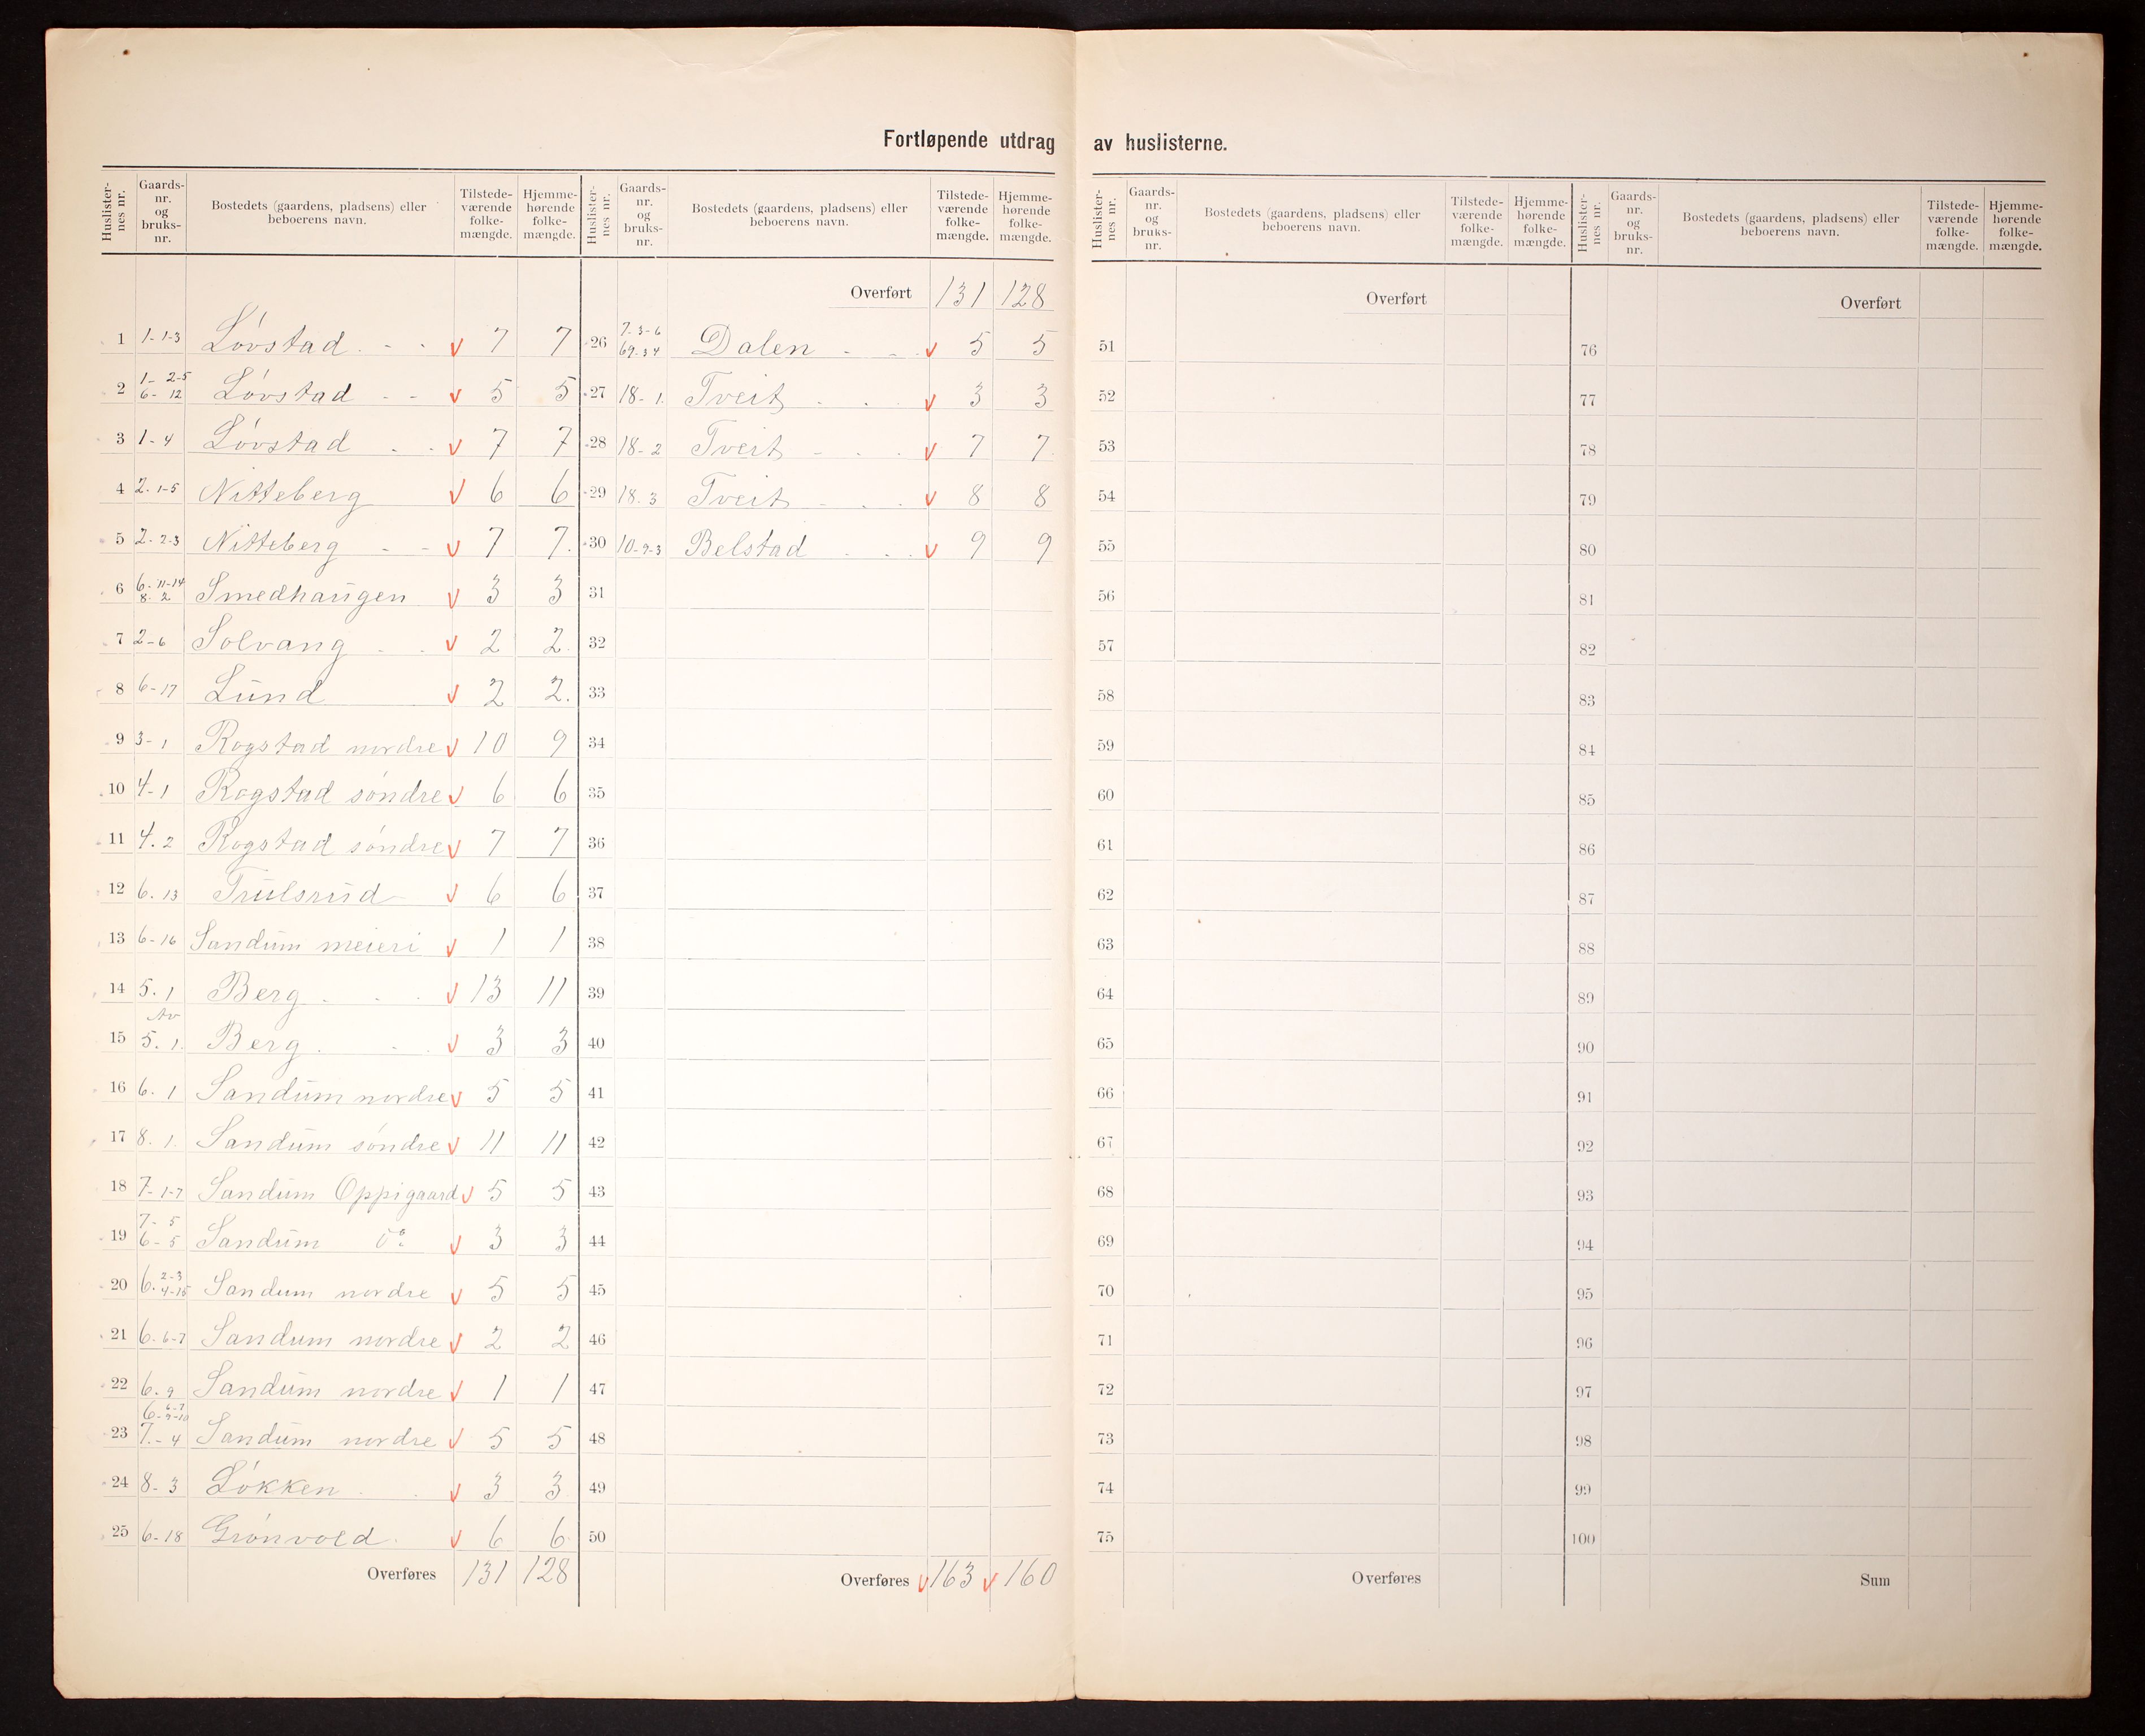 Fortløpende utdrag av huslisterne.
Huslisternes nr. Gaards-nr. og bruks-nr. Bostedets (gaardens, pladsens) eller beboerens navn. Tilstede-værende folke-mængde. Hjemme-hørende folke-mængde.
1 1-1-3 Lövstad 7 7
2 1-2-5 6-12 Lövstad 5 5
3 1-4 Lövstad 7 7
4 2.1-5 Nitteberg 6 6
5 2-2-3 Nitteberg 7 7.
6 6-11-14 8.2 Smedhaugen 3 3
7 2-6 Solvang 2 2
8 6-17 Lund 2 2.
9 3-1 Rogstad nordre 10 9
10 4-1 Rogstad söndre 6 6
11 4.2 Rogstad söndre 7 7
12 6.13 Trulsrud 6 6
13 6-16 Sandum meieri 1 1
14 5.1 Berg 13 11
15 Av 5.1. Berg 3 3
16 6.1 Sandum nordre 5 5
17 8.1. Sandum söndre 11 11
18 7-1-7 Sandum Oppigaard 5 5
19 7-5 6-5 Sandum 3 3
20 6. 2-3 4-15 Sandum nordre 5 5
21 6-6-7 Sandum nordre 2 2
22 6.9 Sandum nordre 1 1
23 6-6-7-9-10 7.-4 Sandum nordre 5 5
24 8-3 Lökken 3 3
25 6-18 Grönvold 6 6
Overføres 131 128
Huslisternes nr. Gaards-nr. og bruks-nr. Bostedets (gaardens, pladsens) eller beboerens navn. Tilstede-værende folke-mængde. Hjemme-hørende folke-mængde.
Overført 131 128
26 7-3-6 69-34 Dalen 5 5
27 18-1. Tveit 3 3
28 18-2 Tveit 7 7
29 18.3 Tveit 8 8
30 10-2-3 Belstad 9 9
31
32
33
34
35
36
37
38
39
40
41
42
43
44
45
46
47
48
49
50
Overføres 163 160
Huslisternes nr. Gaards-nr. og bruks-nr. Bostedets (gaardens, pladsens) eller beboerens navn. Tilstede-værende folke-mængde. Hjemme-hørende folke-mængde.
Overført
51
52
53
54
55
56
57
58
59
60
61
62
63
64
65
66
67
68
69
70
71
72
73
74
75
Overføres
Huslisternes nr. Gaards-nr. og bruks-nr. Bostedets (gaardens, pladsens) eller beboerens navn. Tilstede-værende folke-mængde. Hjemme-hørende folke-mængde.
Overført
76
77
78
79
80
81
82
83
84
85
86
87
88
89
90
91
92
93
94
95
96
97
98
99
100
Sum